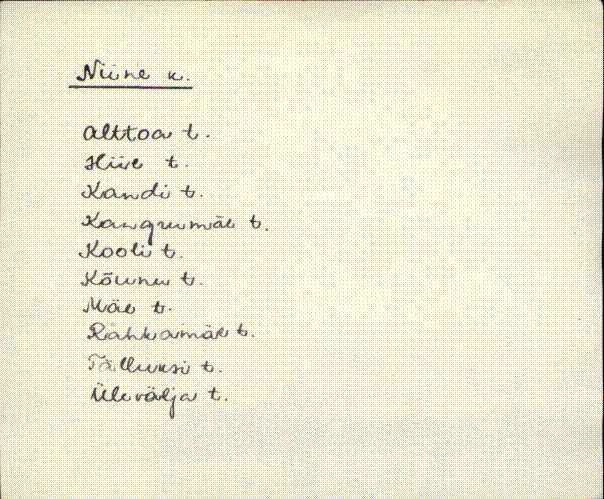 Niine k.
Alttoa t.
Hiie t.
Kandi t.
Kangrumäe t.
Kooli t.
Kõunu t.
Mäe t.
Rähkamäe t.
Tälluksi t.
Ülevälja t.